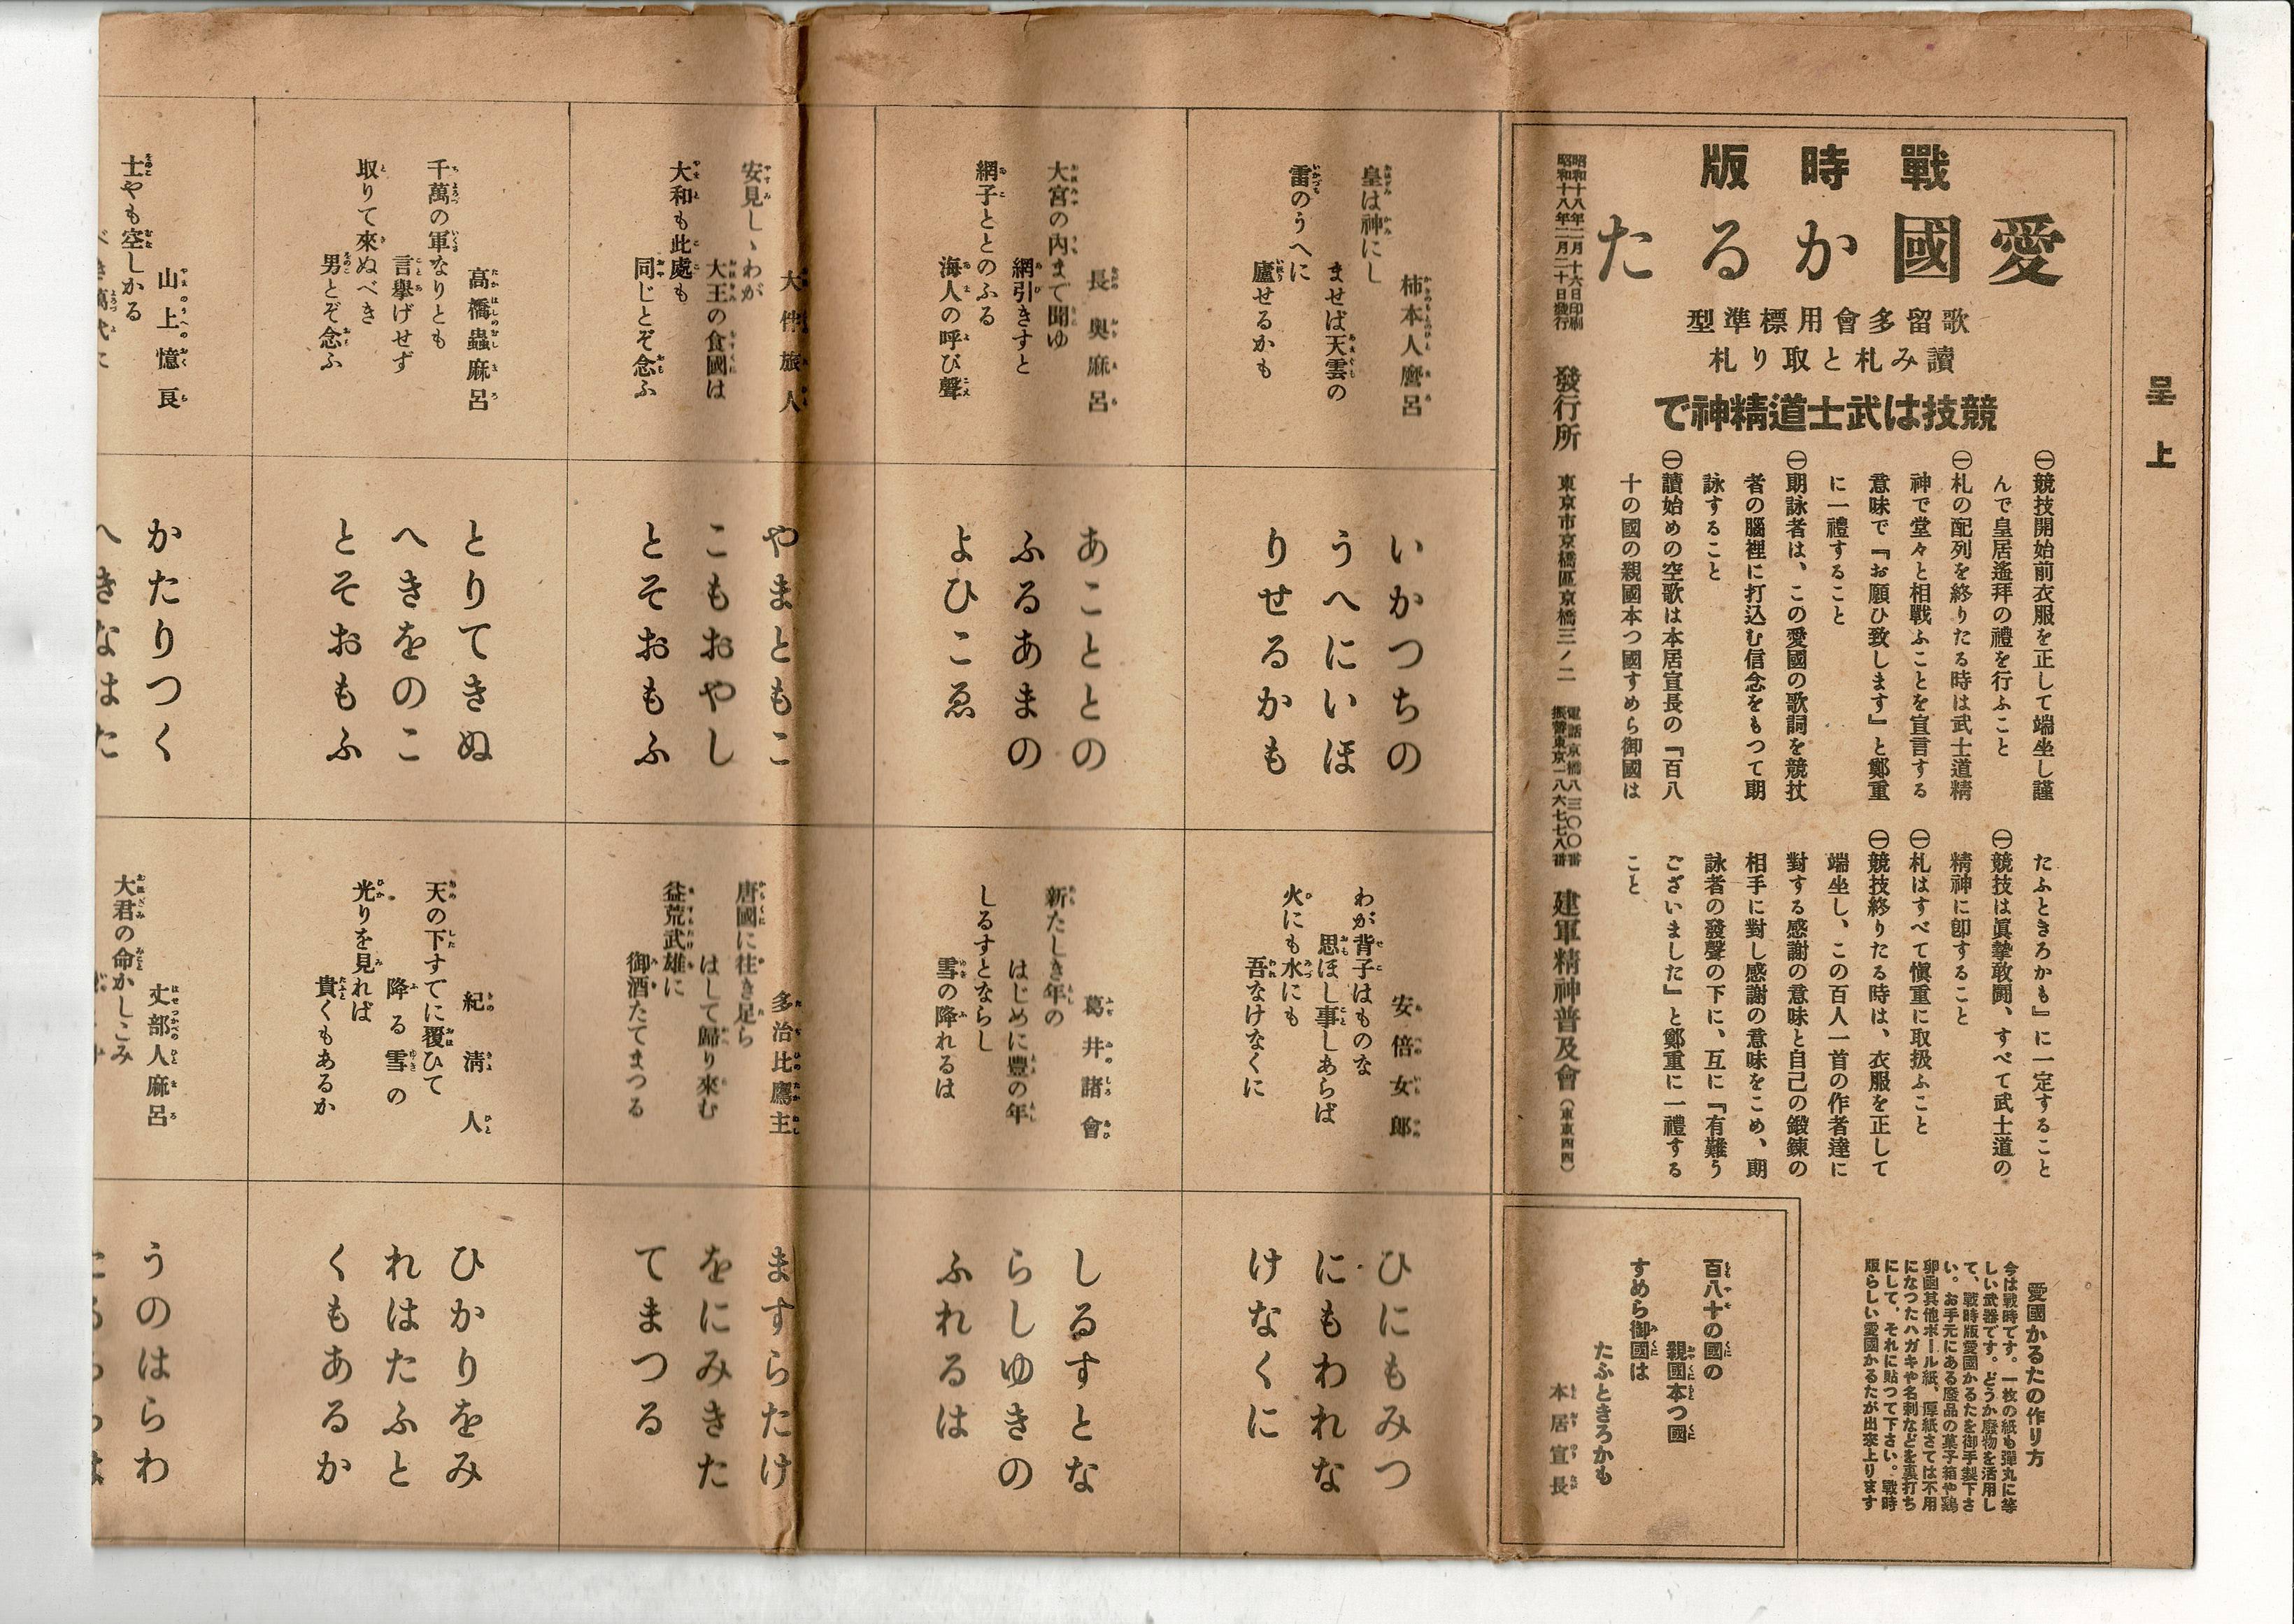 呈上
戰時版
愛國かるた
歌留多會用標準型
讀み札と取り札
競技は武士道精神で
㊀競技開始前衣服を正して端坐し謹
んで皇居遙拜の禮を行ふこと
㊀札の配列を終りたる時は武士道精
神で堂々と相戰ふことを宣言する
意味で『お願ひ致します』と鄭重
に一禮すること
㊀朗詠者は、この愛國の歌詞を競技
者の腦裡に打込む信念をもつて朗
詠すること
㊀讀始めの空歌は本居宣長の『百八
十の國の親國本つ國すめら御國は
たふときろかも』に一定すること
㊀競技は眞摯敢鬪、すべて武士道の
精神に卽すること
㊀札はすべて愼重に取扱ふこと
㊀競技終りたる時は、衣服を正して
端坐し、この百人一首の作者達に
對する感謝の意味と自己の鍛錬の
相手に對し感謝の意味をこめ、朗
詠者の發聲の下に、互に『有難う
ございました』と鄭重に一禮する
こと
昭和十八年二月十六日印刷
昭和十八年二月二十日發行
發行所
東京市京橋區京橋三ノ二
電話京橋八三〇〇番
振替東京一八六七七八番
建軍精神普及會
(東東四四)
愛國かるたの作り方
今は戰時です。一枚の紙も彈丸に等
しい武器です。どうか廢物を活用し
て、戰時版愛國かるたを御手製下さ
い。お手元にある廢品の菓子箱や鷄
卵函其他ボール紙、厚紙さては不用
になつたハガキや名刺などを裏打ち
にして、それに貼つて下さい。戰時
版らしい愛國かるたが出來上ります
百八十の國の
親國本つ國
すめら御國は
たふときろかも
本居宣長
柿本人麿呂
皇は神にし
ませば天雲の
雷のうへに
廬せるかも
いかつちの
うへにいほ
りせるかも
安倍女郎
わが背子はものな
思ほし事しあらば
火にも水にも
吾なけなくに
ひにもみつ
にもわれな
けなくに
長奥麻呂
大宮の內まで聞ゆ
網引きすと
網子ととのふる
海人の呼び聲
あこととの
ふるあまの
よひこゑ
葛井諸會
新たしき年の
はじめに豐の年
しるすとならし
雪の降れるは
しるすとな
らしゆきの
ふれるは
大伴旅人
安見しゝわが
大王の食國は
大和も此處も
同じとぞ念ふ
やまともこ
こもおやし
とそおもふ
多治比鷹主
唐國に往き足ら
はして歸り來む
益荒武雄に
御酒たてまつる
ますらたけ
をにみきた
てまつる
高橋蟲麻呂
千萬の軍なりとも
言擧げせず
取りて來ぬべき
男とぞ念ふ
とりてきぬ
へきをのこ
とそおもふ
紀淸人
天の下すでに覆ひて
降る雪の
光りを見れば
貴くもあるか
ひかりをみ
れはたふと
くもあるか
山上憶良
士やも空しかる
かたりつく
へきなはた
丈部人麻呂
大君の命かしこみ
うのはらわ